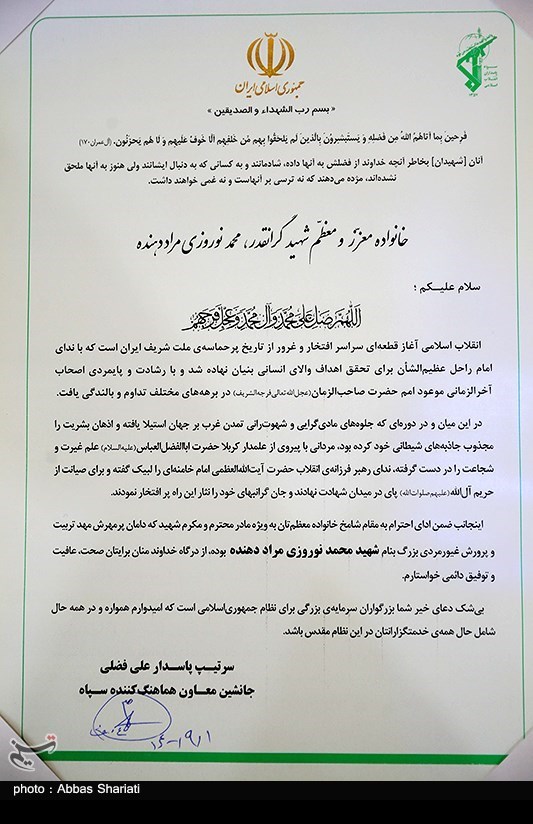 جمهوری اسلامی ایران
سپاه پاسداران انقلاب اسلامی
« بسم رب الشهداء و الصدیقین »
فَرِحینَ بِما آتاهُمُ اللهُ مِن فَضلِهِ وَ یَستَبشِرونَ بِالَّذینَ لَم یَلحَقوا بِهِم مِّن خَلفِهِم اَلّا خَوفٌ عَلَیهِم وَ لا هُم یَحزَنُون. (آل عمران/۱۷۰)
آنان [شهیدان] بخاطر آنچه خداوند از فضلش به آنها داده، شادمانند و به کسانی که به دنبال ایشانند ولی هنوز به آنها ملحق
نشده‌اند، مژده می‌دهند که نه ترسی بر آنهاست و نه غمی خواهند داشت.
خانواده معزز و معظّم شهید گرانقدر، محمد نوروزی مراد دهنده
سلام علیـــکم ؛
اللّهُمَّ صَلِّ عَلی مُحَمَّدٍ وَ آلِ مُحَمَّدٍ وَ عَجِّل فَرَجَهُم
انقلاب اسلامی آغاز قطعه‌ای سراسر افتخار و غرور از تاریخ پرحماسه‌ی ملت شریف ایران است که با ندای
امام راحل عظیم‌الشأن برای تحقق اهداف والای انسانی بنیان نهاده شد و با رشادت و پایمردی اصحاب
آخرالزمانی موعود امم حضرت صاحب‌الزمان(عجل‌الله‌تعالی‌فرجه‌الشریف) در برهه‌های مختلف تداوم و بالندگی یافت.
در این میان و در دوره‌ای که جلوه‌های مادی‌گرایی و شهوت‌رانی تمدن غرب بر جهان استیلا یافته و اذهان بشریت را
مجذوب جاذبه‌های شیطانی خود کرده بود، مردانی با پیروی از علمدار کربلا حضرت اباالفضل‌العباس(علیه‌السلام) علم غیرت و
شجاعت را در دست گرفته، ندای رهبر فرزانه‌ی انقلاب حضرت آیت‌الله‌العظمی امام خامنه‌ای را لبیک گفته و برای صیانت از
حریم آل‌الله(علیهم‌صلوات‌الله) پای در میدان شهادت نهادند و جان گرانبهای خود را نثار این راه پر افتخار نمودند.
اینجانب ضمن ادای احترام به مقام شامخ خانواده معظم‌تان به ویژه مادر محترم و مکرم شهید که دامان پرمهرش مهد تربیت
و پرورش غیورمردی بزرگ بنام شهید محمد نوروزی مراد دهنده بوده، از درگاه خداوند منان برایتان صحت، عافیت
و توفیق دائمی خواستارم.
بی‌شک دعای خیر شما بزرگواران سرمایه‌ی بزرگی برای نظام جمهوری‌اسلامی است که امیدوارم همواره و در همه حال
شامل حال همه‌ی خدمتگزارانتان در این نظام مقدس باشد.
سرتیپ پاسدار علی فضلی
جانشین معاون هماهنگ‌کننده سپاه
تسنیم
photo : Abbas Shariati